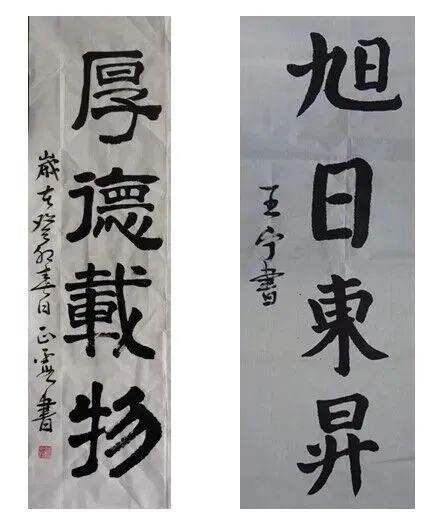 厚德載物
歲在癸卯春日正霞書
旭日東昇
王宁書